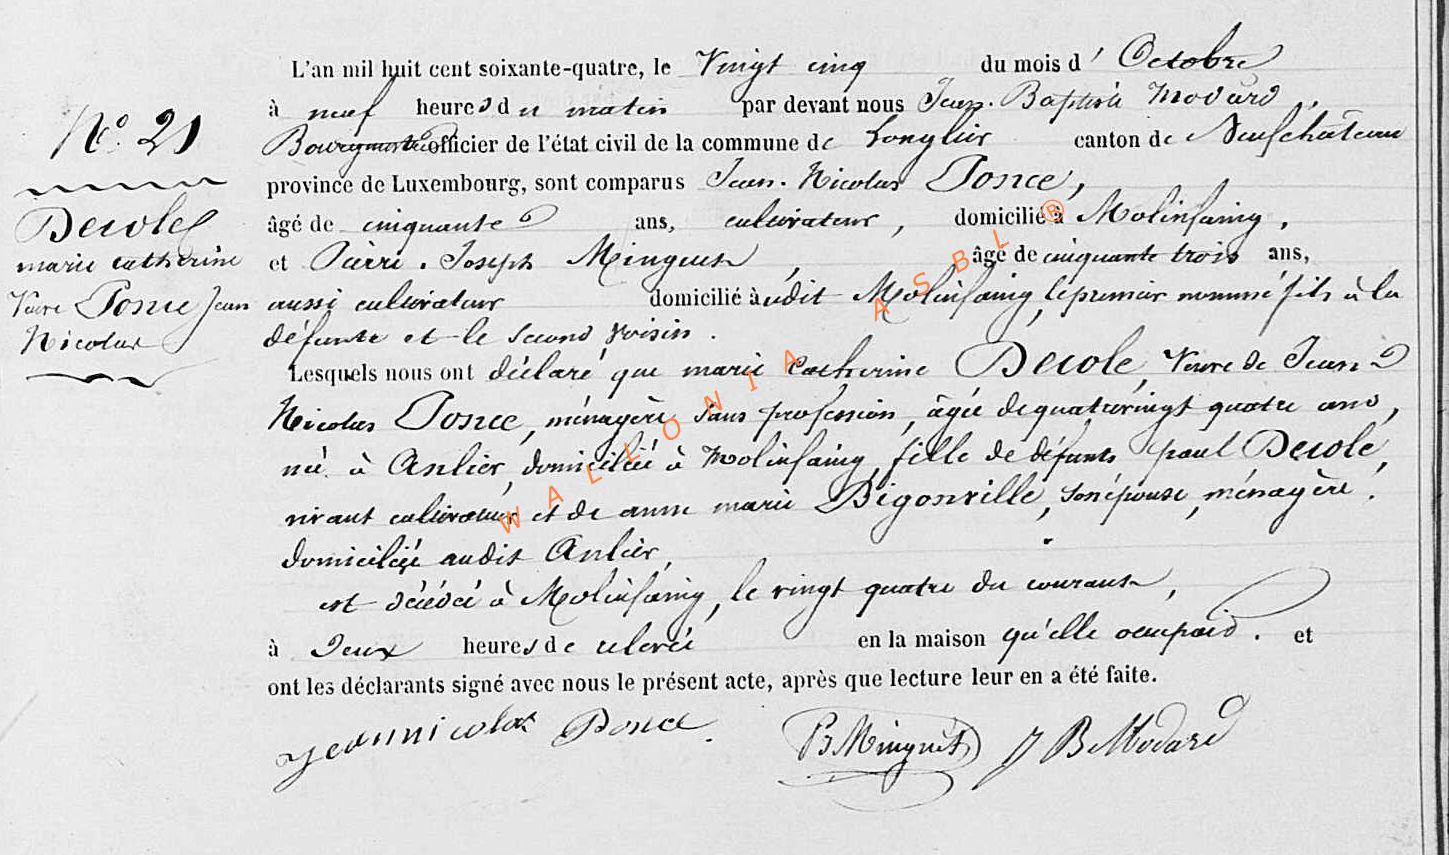 N° 21
Decole
marie catherine
Veuve Ponce Jean
Nicolas
L'an mil huit cent soixante-quatre, le Vingt cinq du mois d' Octobre
à neuf heures du matin par devant nous Jean-Baptiste Modard,
Bourgmestre officier de l'état civil de la commune de Longlier canton de Neufchateau
province de Luxembourg, sont comparus Jean-Nicolas Ponce,
âgé de cinquante ans, cultivateur, domicilié à Molinfaing,
et Pierre-Joseph Minguet âgé de cinquante trois ans,
aussi cultivateur domicilié à udit Molinfaing, le premier nommé fils à la
défunte et le second voisin.
Lesquels nous ont déclaré que marie Catherine Decole, Veuve de Jean
Nicolas Ponce, ménagère sans profession, âgée de quatrevingt quatre ans,
née à Anlier, domiciliée à Molinfaing, fille de défunts paul Decole,
vivant cultivateur et de anne marie Bigonville, son épouse, ménagère,
domiciliée audit Anlier,
est décédée à Molinfaing, le vingt quatre du courant,
à Deux heures de relevée en la maison qu'elle occupait. et
ont les déclarants signé avec nous le présent acte, après que lecture leur en a été faite.
Jean nicolas Ponce PJ Minguet J B Modard
WALLONIA ASBL ®